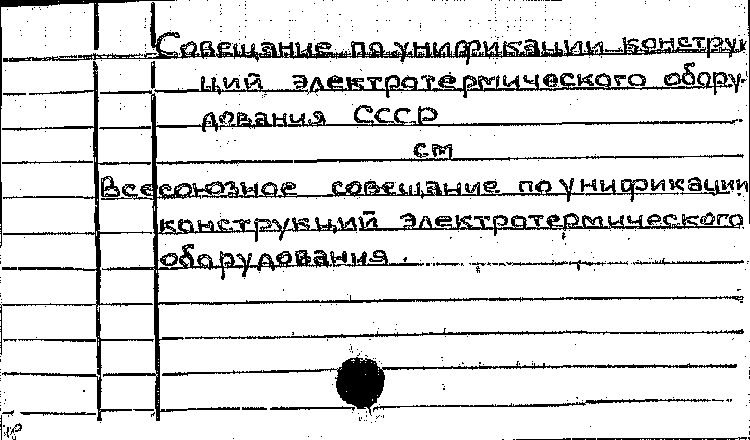 Совещание по унификации констру
ций электротермического обору-
дования СССР
см
Всесоюзное совещание по унификации
конструкций электротермического
оборудования.